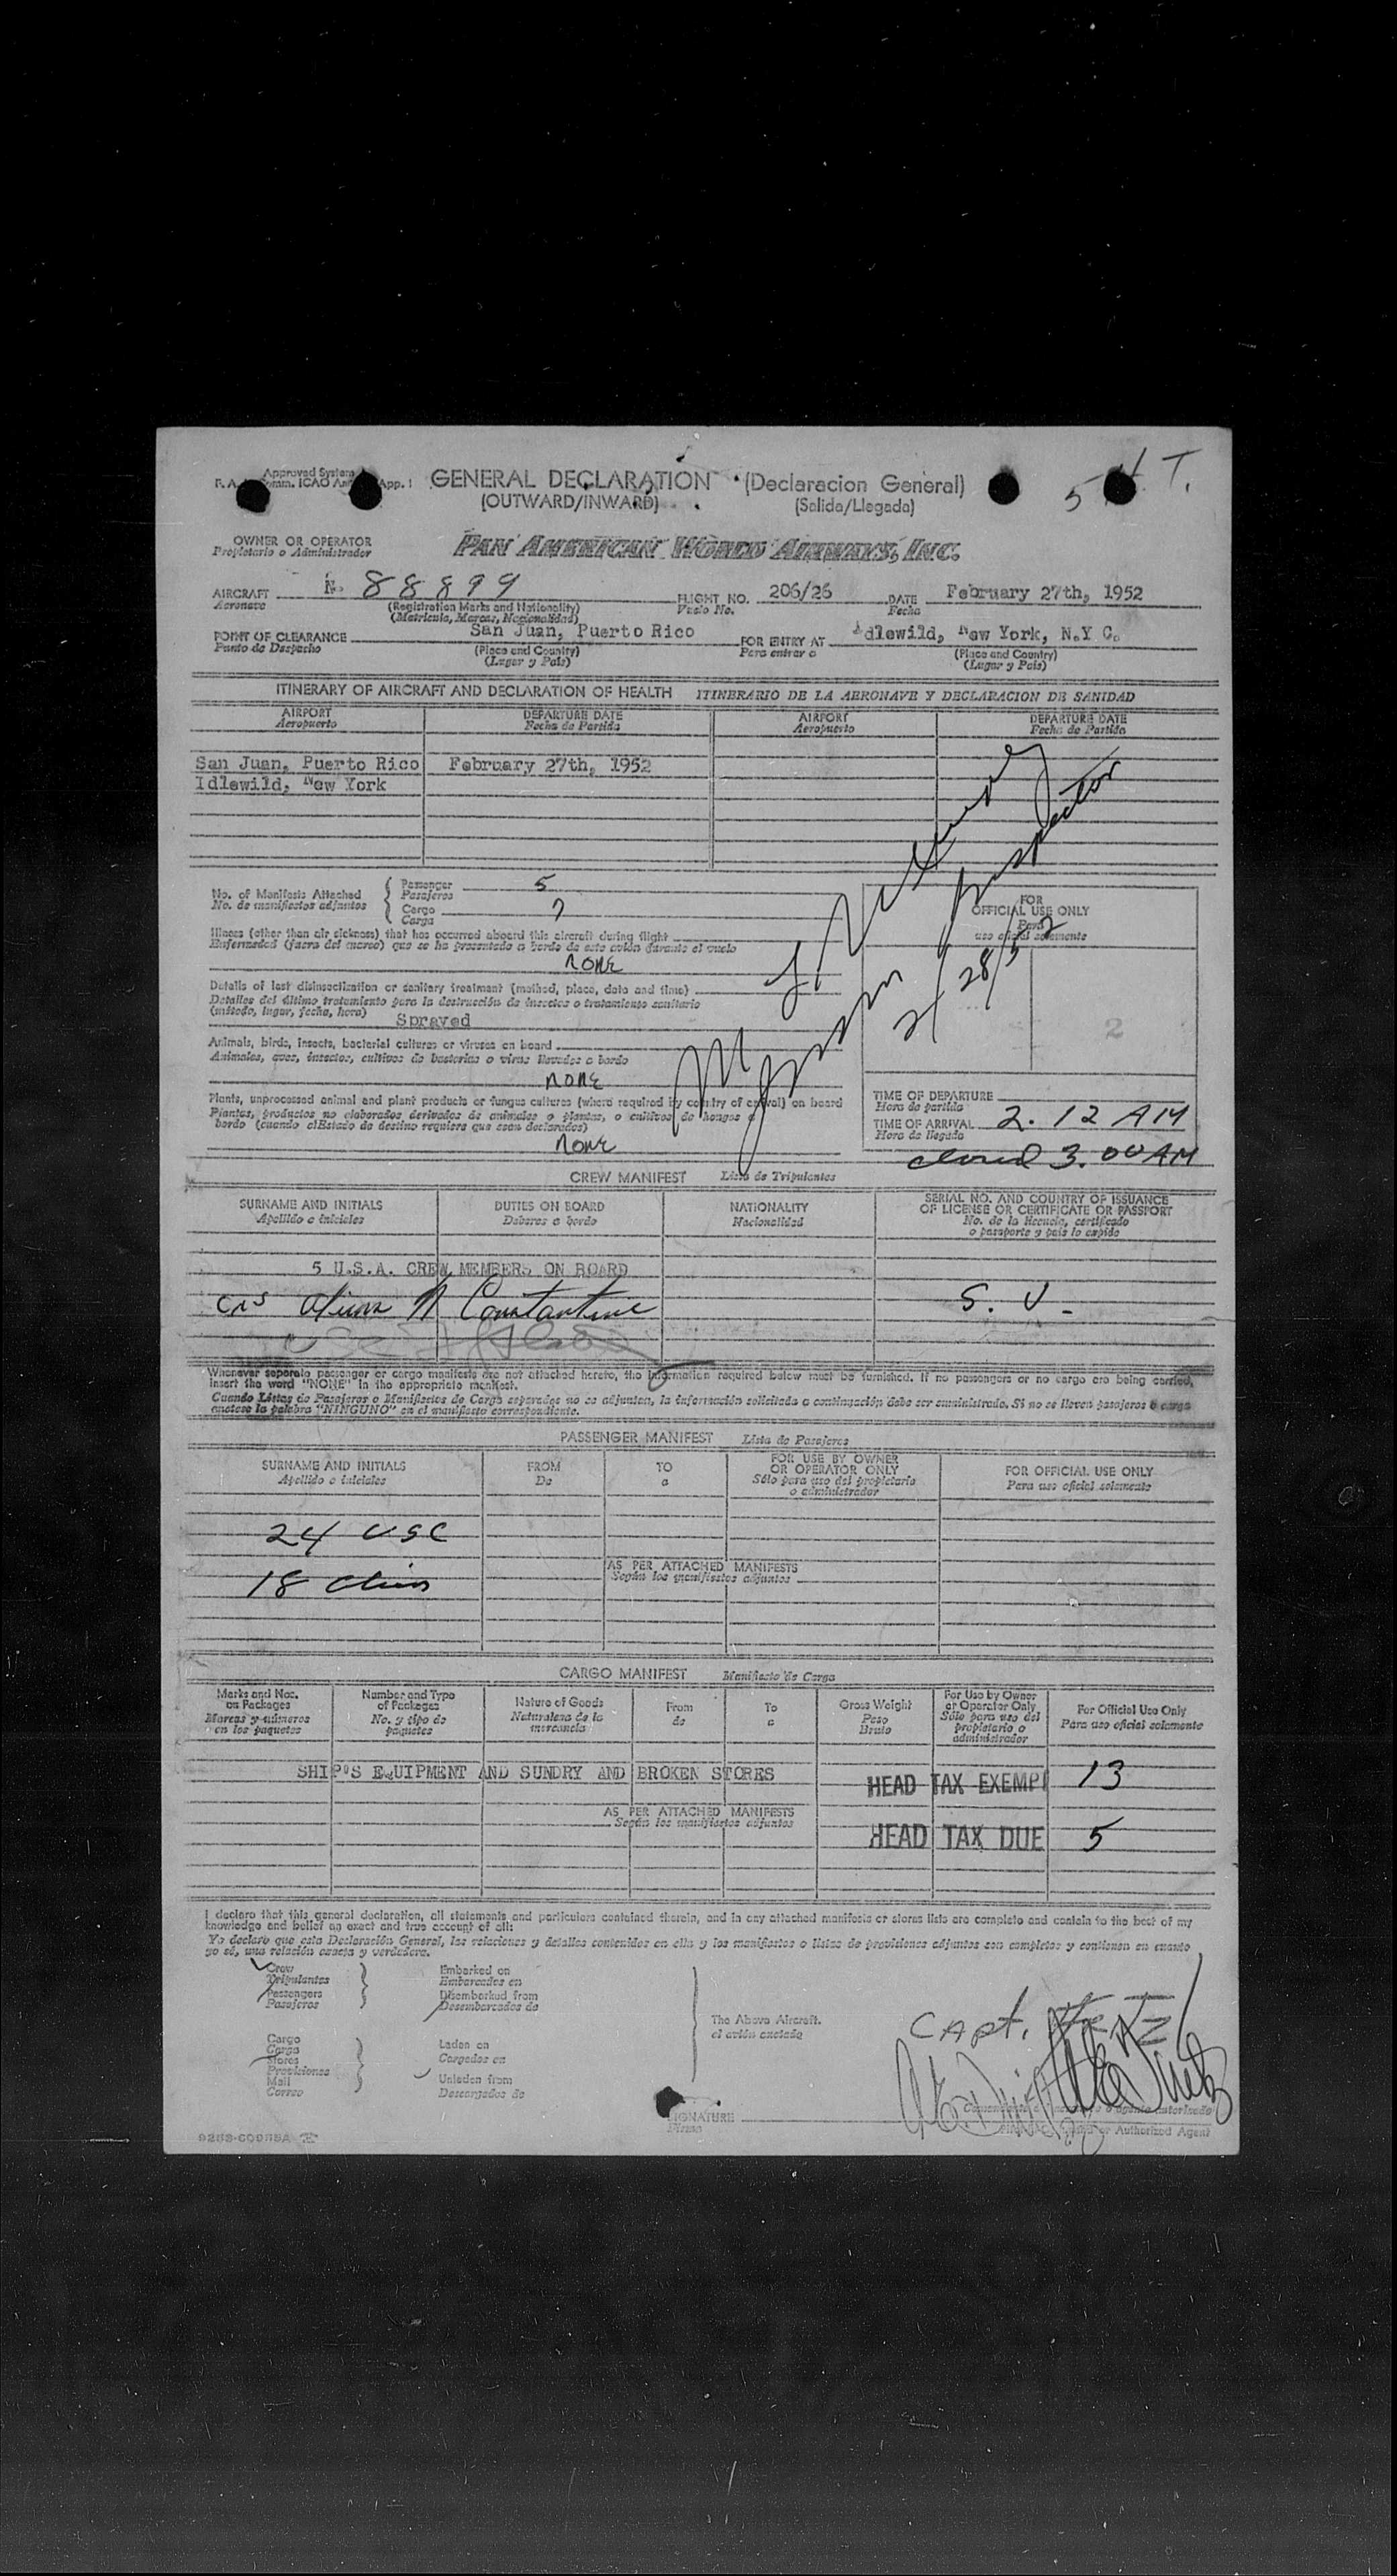 Approved System
App. 1
GENERAL DECLARATION (Declaracion General)
(OUTWARD/INWARD) (Salida/Llegada)
5 H.T.
OWNER OR OPERATOR
Propietario o Administrador
PAN AMERICAN WORLD AIRWAYS, INC.
AIRCRAFT N. 88899 FLIGHT NO. 206/26 DATE February 27th, 1952
Aeronave (Registration Marks and Nationality) Vuelo No. Fecha
(Matricula, Marcas, Nacionalidad)
POINT OF CLEARANCE San Juan, Puerto Rico FOR ENTRY AT Idlewild, New York, N.Y.C.
Punto de Despacho (Place and Country) Para entrar a (Place and Country)
(Lugar y País) (Lugar y País)
ITINERARY OF AIRCRAFT AND DECLARATION OF HEALTH ITINERARIO DE LA AERONAVE Y DECLARACION DE SANIDAD
AIRPORT DEPARTURE DATE AIRPORT DEPARTURE DATE
Aeropuerto Fecha de Partida Aeropuerto Fecha de Partida
San Juan, Puerto Rico February 27th, 1952
Idlewild, New York
No. of Manifests Attached Passenger 5
No. de manifiestos adjuntos Pasajeros
Cargo 7
Carga
Illness (other than air sickness) that has occurred aboard this aircraft during flight
Enfermedad (fuera del mareo) que se ha presentado a bordo de este avión durante el vuelo
NONE
Details of last disinsectization or sanitary treatment (method, place, date and time)
Detalles del último tratamiento para la destrucción de insectos o tratamiento sanitario
(método, lugar, fecha, hora) Sprayed
Animals, birds, insects, bacterial cultures or viruses on board
Animales, aves, insectos, cultivos de bacterias o virus llevados a bordo
NONE
Plants, unprocessed animal and plant products or fungus cultures (where required by country of arrival) on board
Plantas, productos no elaborados derivados de animales o plantas, o cultivos de hongos a
bordo (cuando el Estado de destino requiera que sean declarados)
NONE
Inspector
2/28/52
FOR
OFFICIAL USE ONLY
Para
uso oficial solamente
2
TIME OF DEPARTURE
Hora de partida
TIME OF ARRIVAL 2.12 AM
Hora de llegada
closed 3.00 AM
CREW MANIFEST Lista de Tripulantes
SURNAME AND INITIALS DUTIES ON BOARD NATIONALITY SERIAL NO. AND COUNTRY OF ISSUANCE
OF LICENSE OR CERTIFICATE OR PASSPORT
Apellido e iniciales Deberes a bordo Nacionalidad No. de la licencia, certificado
o pasaporte y país lo expide
5 U.S.A. CREW MEMBERS ON BOARD
N Constantine S. V.
Whenever separate passenger or cargo manifests are not attached hereto, the information required below must be furnished. If no passengers or no cargo are being carried,
insert the word "NONE" in the appropriate manifest.
Cuando Listas de Pasajeros o Manifiestos de Carga separados no se adjunten, la información solicitada a continuación debe ser suministrada. Si no se lleven pasajeros o carga
anotese la palabra "NINGUNO" en el manifiesto correspondiente.
PASSENGER MANIFEST Lista de Pasajeros
SURNAME AND INITIALS FROM TO FOR USE BY OWNER
OR OPERATOR ONLY FOR OFFICIAL USE ONLY
Apellido e iniciales De a Sólo para uso del propietario
o administrador Para uso oficial solamente
24 USC
18
AS PER ATTACHED MANIFESTS
Según los manifiestos adjuntos
CARGO MANIFEST Manifiesto de Carga
Marks and Nos. on Packages Number and Type of Packages Nature of Goods From To Gross Weight For Use by Owner or Operator Only For Official Use Only
Marcas y números en los paquetes No. y tipo de paquetes Naturaleza de la mercancía de a Peso Bruto Sólo para uso del propietario o administrador Para uso oficial solamente
SHIP'S EQUIPMENT AND SUNDRY AND BROKEN STORES
HEAD TAX EXEMPT 13
AS PER ATTACHED MANIFESTS
Según los manifiestos adjuntos
HEAD TAX DUE 5
I declare that this general declaration, all statements and particulars contained therein, and in any attached manifests or stores lists are complete and contain to the best of my
knowledge and belief an exact and true account of all:
Yo declaro que esta Declaración General, las relaciones y detalles contenidos en ella y los manifiestos o listas de provisiones adjuntos son completos y contienen en cuanto
yo sé, una relación exacta y verdadera.
Crew Embarked on
Tripulantes Embarcados en
Passengers Disembarked from
Pasajeros Desembarcados de
The Above Aircraft.
el avión anotado
Cargo Laden on
Carga Cargados en
Stores
Provisiones
Mail Unladen from
Correo Descargados de
Capt.
SIGNATURE
Firma
or Authorized Agent